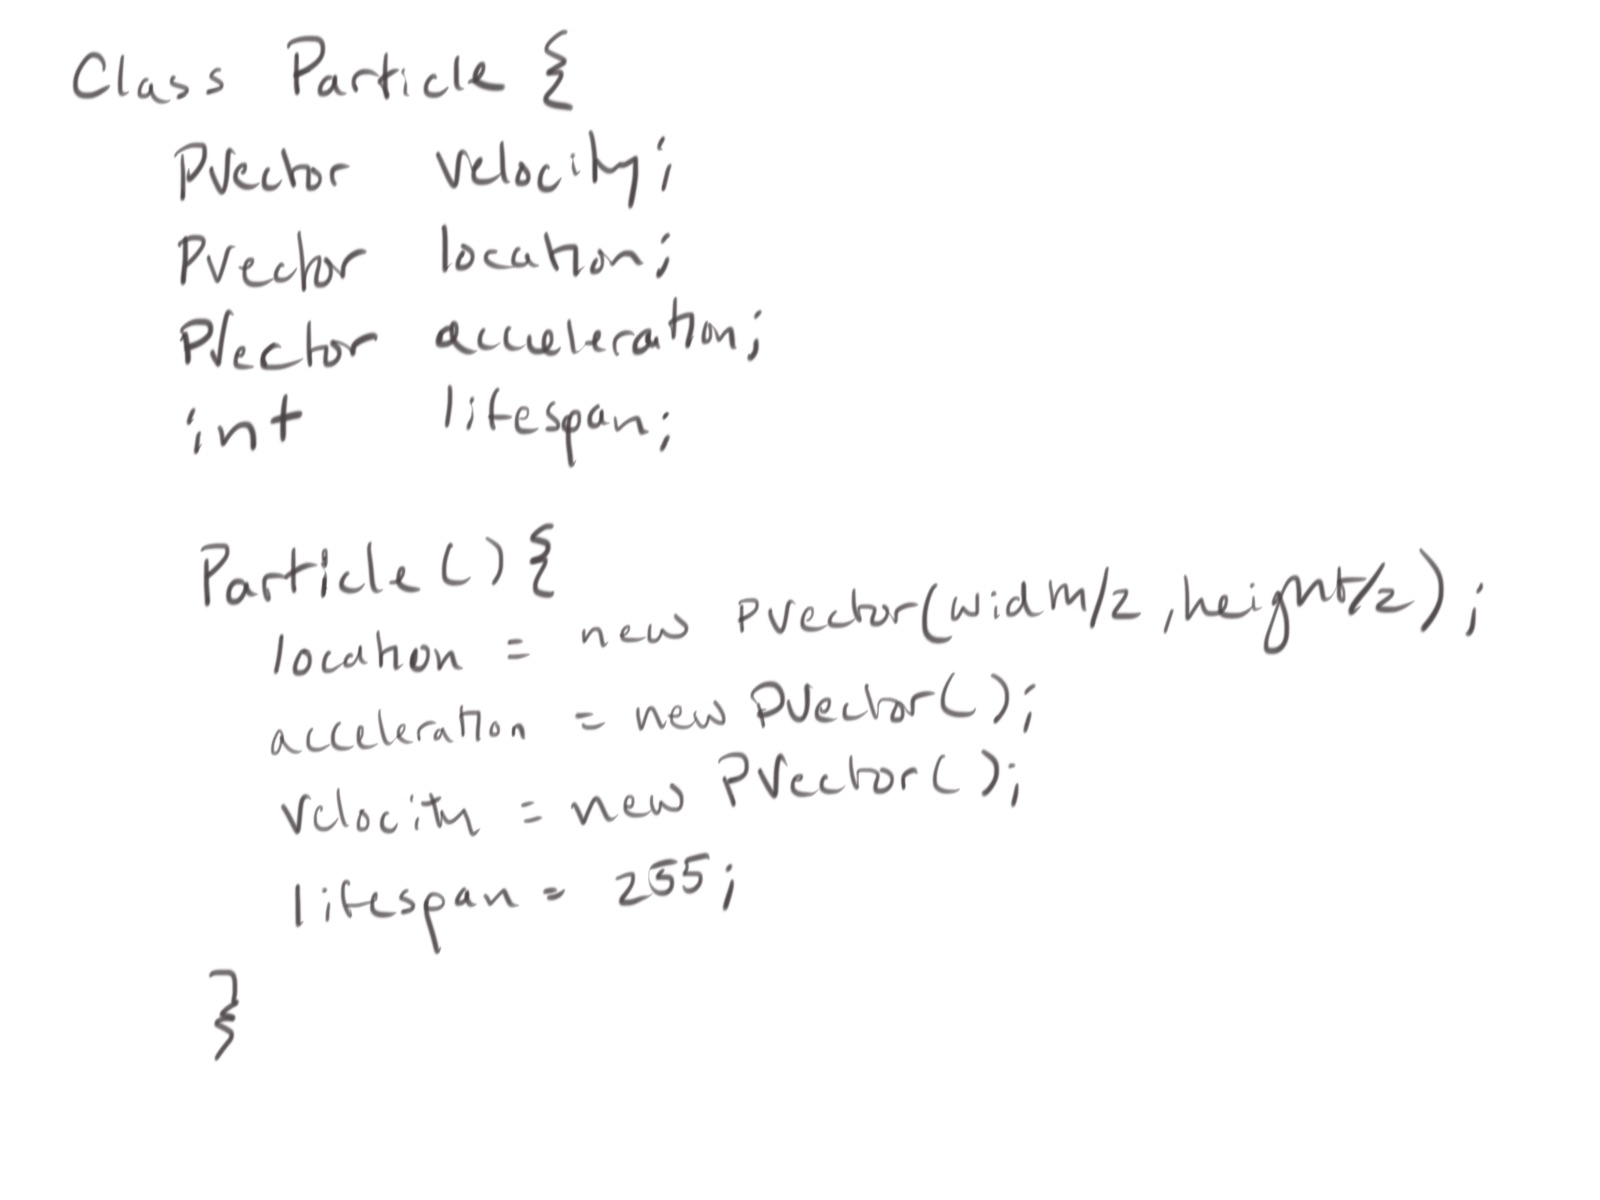 Class Particle {
PVector velocity;
PVector location;
PVector acceleration;
int lifespan;
Particle () {
location = new PVector(width/2, height/2);
acceleration = new PVector();
velocity = new PVector();
lifespan = 255;
}